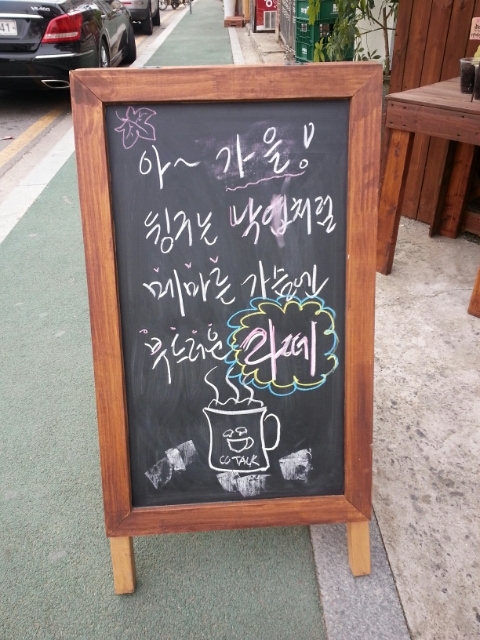 아~ 가을!
뒹구는 낙엽처럼
메마른 가슴엔
부드러운 라떼
CO TALK